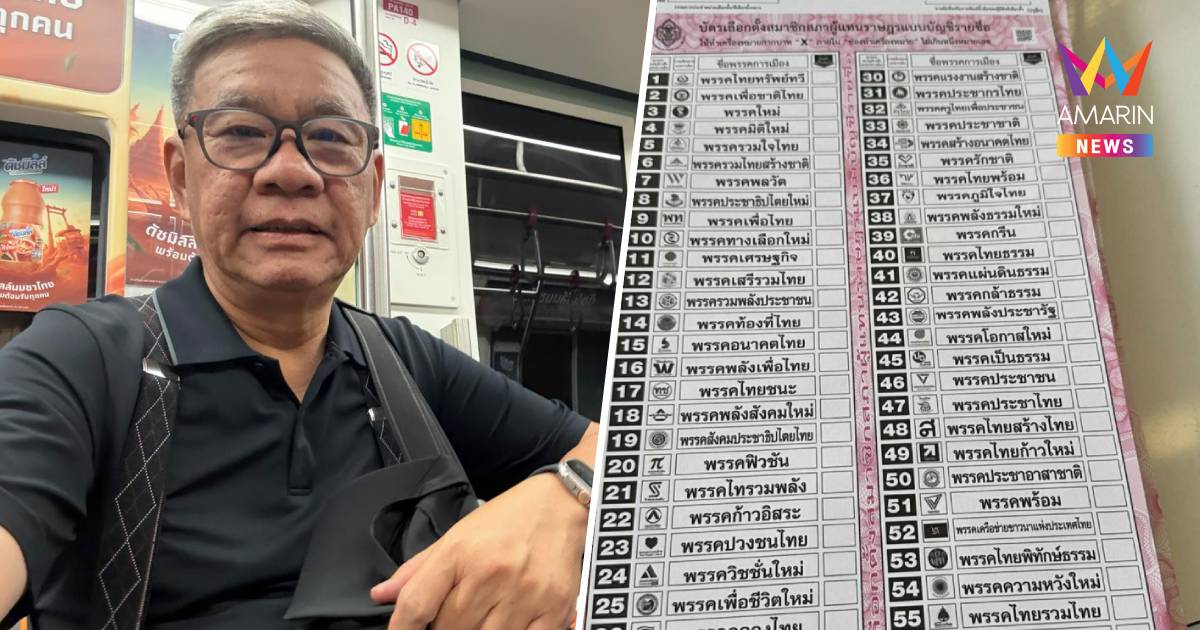 ทุกคน
PA140
D-4
ดัชมิลล์
ใหม่!
ดัชมิลล์
บัตรเลือกตั้งสมาชิกสภาผู้แทนราษฎรแบบบัญชีรายชื่อ
ให้ทำเครื่องหมายกากบาท "X" ภายใน "ช่องทำเครื่องหมาย" ได้เพียงหนึ่งหมายเลข
ชื่อพรรคการเมือง
1 พรรคไทยทรัพย์ทวี
2 พรรคเพื่อชาติไทย
3 พรรคใหม่
4 พรรคมิติใหม่
5 พรรครวมใจไทย
6 พรรครวมไทยสร้างชาติ
7 พรรคพลวัต
8 พรรคประชาธิปไตยใหม่
9 พท พรรคเพื่อไทย
10 พรรคทางเลือกใหม่
11 พรรคเศรษฐกิจ
12 พรรคเสรีรวมไทย
13 พรรครวมพลังประชาชน
14 พรรคท้องที่ไทย
15 พรรคอนาคตไทย
16 พรรคพลังเพื่อไทย
17 ทช พรรคไทยชนะ
18 พรรคพลังสังคมใหม่
19 พรรคสังคมประชาธิปไตยไทย
20 พรรคฟิวชัน
21 พรรคไทรวมพลัง
22 พรรคก้าวอิสระ
23 พรรคปวงชนไทย
24 พรรควิชชั่นใหม่
25 พรรคเพื่อชีวิตใหม่
ชื่อพรรคการเมือง
30 พรรคแรงงานสร้างชาติ
31 พรรคประชากรไทย
32 พรรคครูไทยเพื่อประชาชน
33 พรรคประชาชาติ
34 พรรคสร้างอนาคตไทย
35 พรรครักชาติ
36 พรรคไทยพร้อม
37 พรรคภูมิใจไทย
38 พรรคพลังธรรมใหม่
39 พรรคกรีน
40 พรรคไทยธรรม
41 พรรคแผ่นดินธรรม
42 พรรคกล้าธรรม
43 พรรคพลังประชารัฐ
44 พรรคโอกาสใหม่
45 พรรคเป็นธรรม
46 พรรคประชาชน
47 พรรคประชาไทย
48 พรรคไทยสร้างไทย
49 พรรคไทยก้าวใหม่
50 พรรคประชาอาสาชาติ
51 พรรคพร้อม
52 พรรคเครือข่ายชาวนาแห่งประเทศไทย
53 พรรคไทยพิทักษ์ธรรม
54 พรรคความหวังใหม่
55 พรรคไทยรวมไทย
AMARIN
NEWS